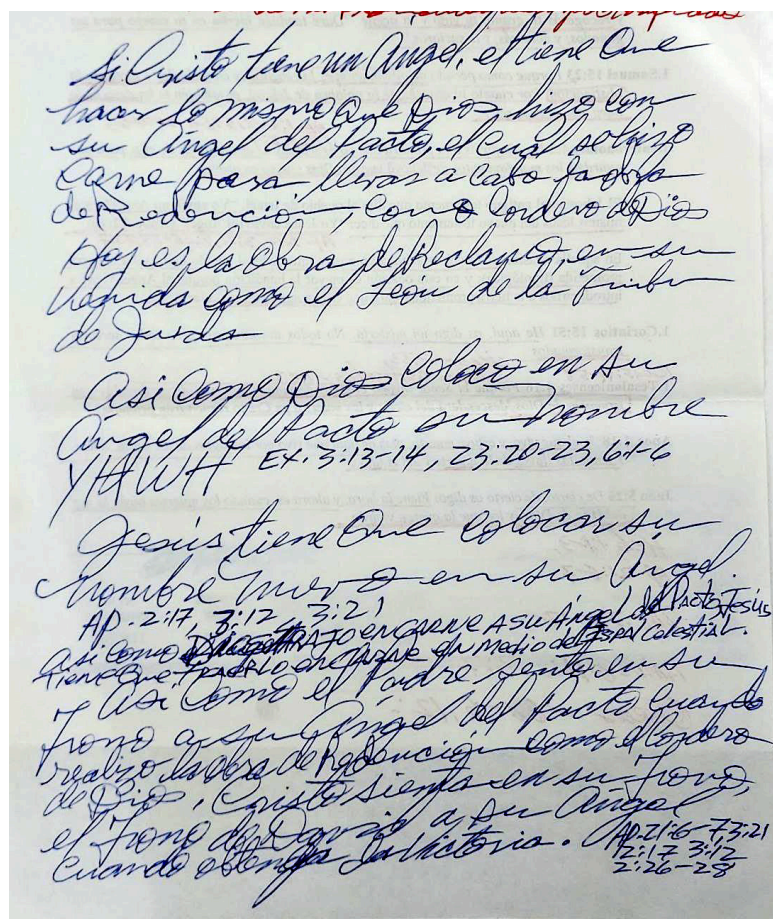 Si Cristo tiene un Angel, el tiene Que
hacer lo mismo Que Dios hizo con
su Ángel del Pacto, el cual se hizo
Carne para llevar a cabo la obra
de Redención, como Cordero de Dios
Hoy es la Obra de Reclamo, en su
Venida como el León de la Tribu
de Juda
Asi como Dios Coloco en su
Ángel del Pacto su nombre
YHWH Ex. 3:13-14, 23:20-23, 6:1-6
Jesús tiene Que colocar su
Nombre Nuevo en su Angel
AP. 2:17, 3:12, 3:21
asi como TRAJO en CARNE A SU Ángel del Pacto, Jesús
tiene Que TRAERLO en CARNE en Medio del Celestial.
Y Asi Como el Padre sento en su
trono a su Ángel del Pacto Cuando
realizo la obra de Redención como el Cordero
de Dios, Cristo sienta en su Trono,
el Trono de David a su Angel
Cuando obtenga la Victoria. AP. 21:6-7, 3:21
2:17 3:12
2:26-28